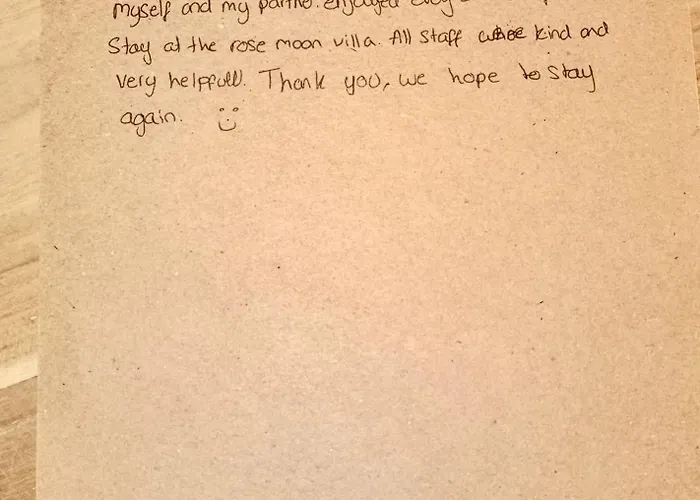 myself and my partne. enjoyed every
Stay at the rose moon villa. All Staff whee kind and
very helpfull. Thank you, we hope to Stay
again. :)